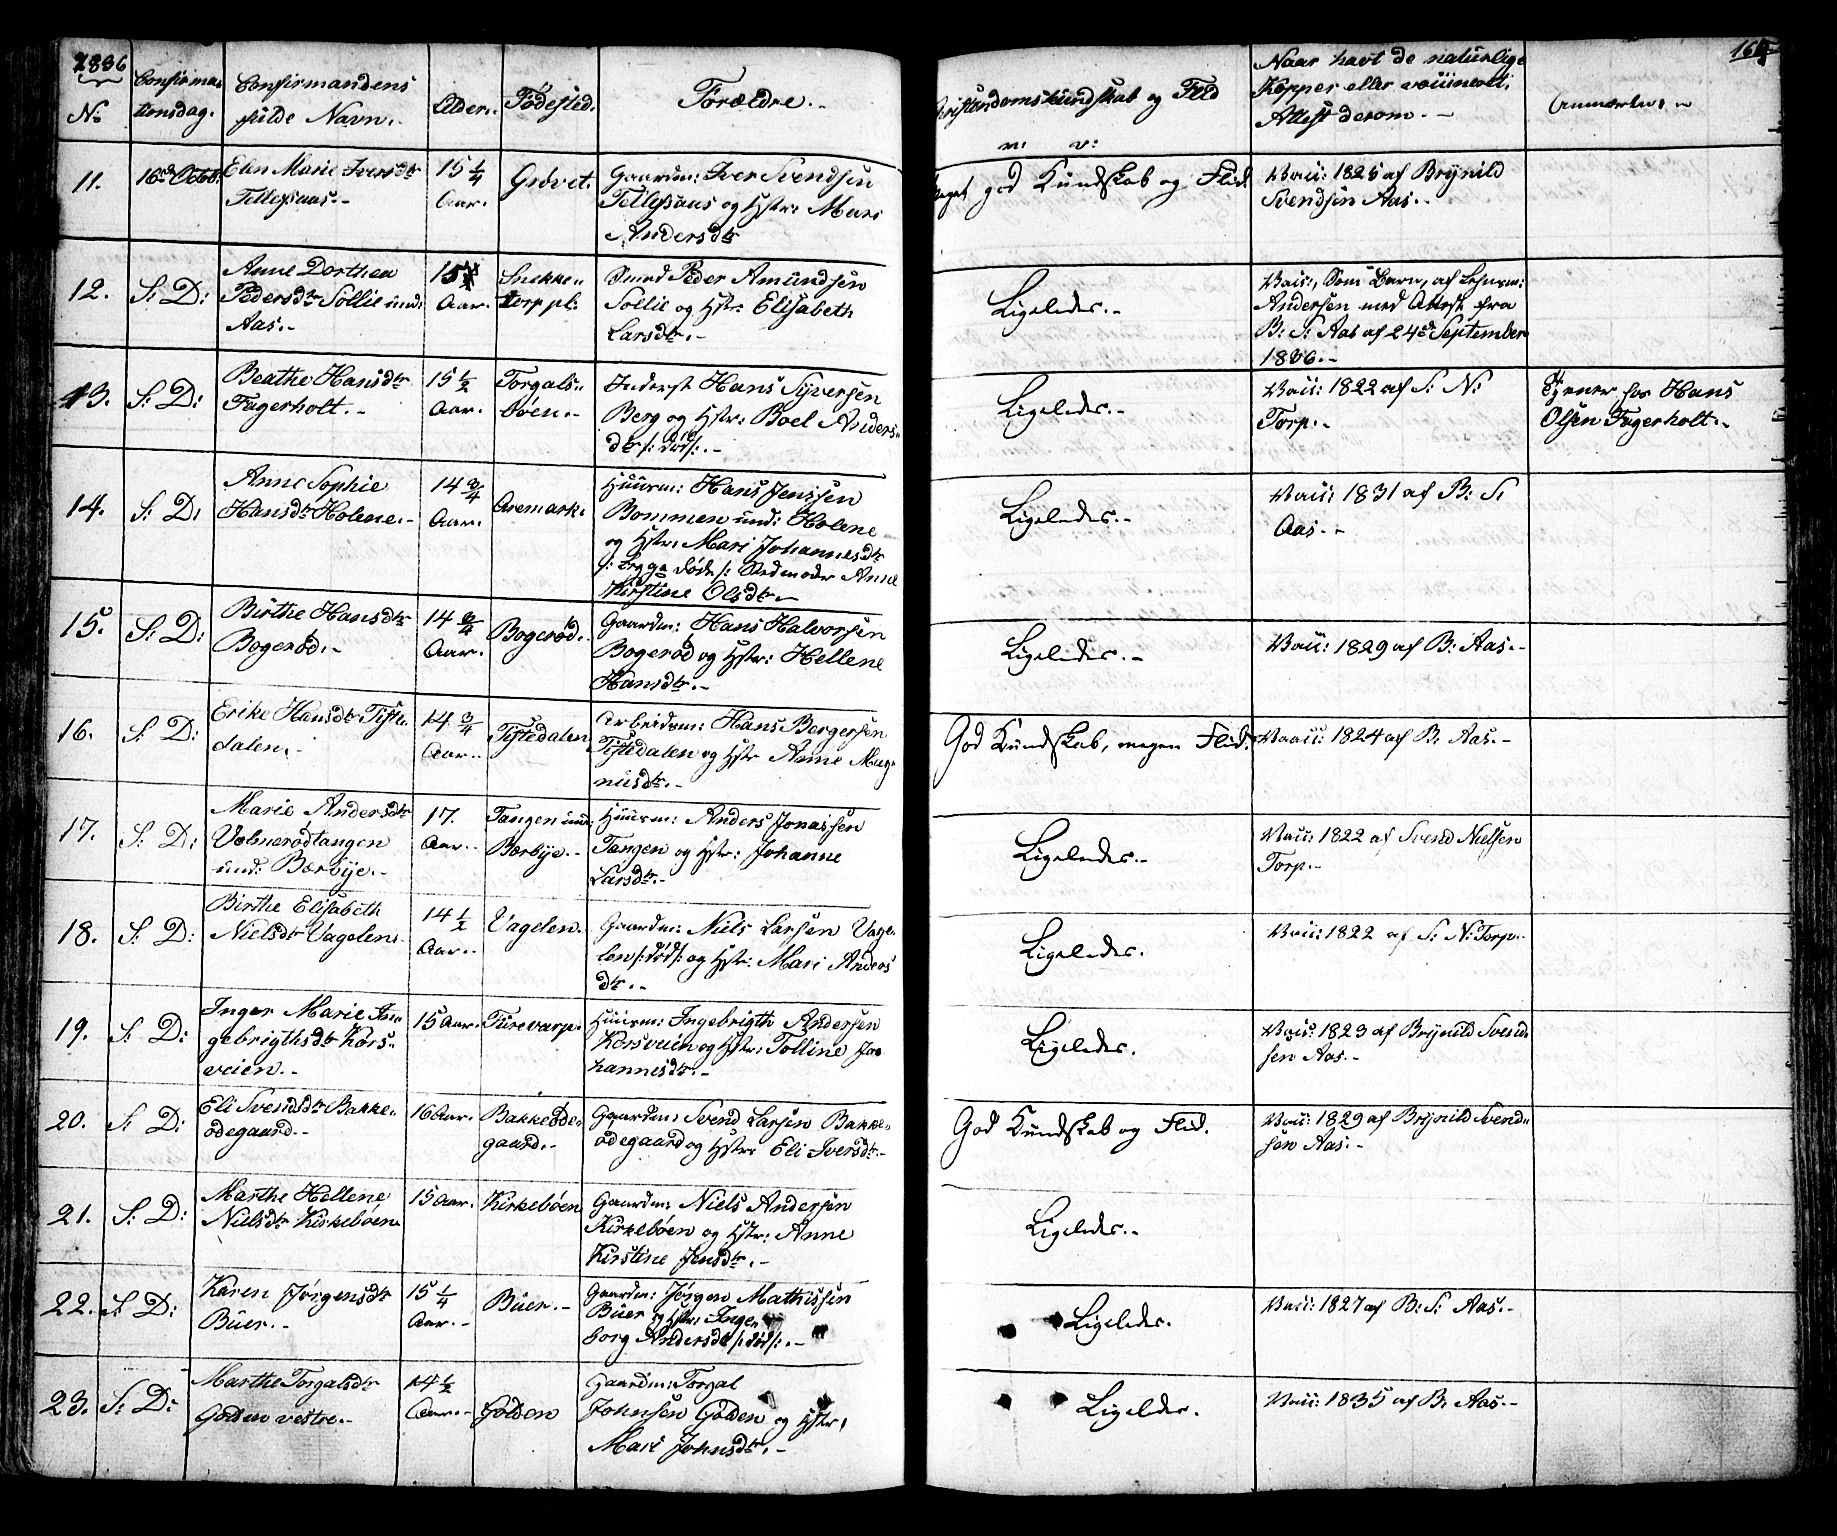 1836
164
No
Confirma-
tionsdag.
Confirmandens
fulde Navn.
Alder.
Fødested.
Forældre.
Christendomskundskab og Flid
Naar havt de naturlige
Kopper eller vaccineret.
Attest derom.
Anmærkn.
11.
16de Octob:
Elen Marie Iversdtr
Tellefsaas.
15 1/4
Aar.
Grøvet.
Gaardm: Iver Svendsen
Tellefsaas og Hstr: Mari
Andersdtr
Meget god Kundskab og Flid.
Vacc: 1825 af Brynild
Svendsen Aas.
12.
S: D:
Anne Dorthea
Pedersdtr Sollie und:
Aas.
15
Aar.
Snekke-
torp pl:
Smed Peder Amundsen
Sollie og Hstr: Elisabeth
Larsdtr.
Ligeledes.
Vacc:, som Barn, af
Andersen med Attest fra
B: S: Aas af 24de September
1836.
13.
S: D:
Beathe Hansdtr
Fagerholt.
15 1/2
Aar.
Torgals-
bøen.
Inderst Hans Syversen
Berg og Hstr: Boel Anders-
dtr /: død :/.
Ligeledes.
Vacc: 1822 af S: N:
Torp.
Tjener for Hans
Olsen Fagerholt.
14.
S: D:
Anne Sophie
Hansdtr Holene.
14 3/4
Aar.
Aremark.
Huusm: Hans Jenssen
Bommen und: Holene
og Hstr: Mari Johannesdtr
/: begge døde :/ Stedmoder Anne
Kirstine Olsdtr.
Ligeledes.
Vacc: 1831 af B: S:
Aas.
15.
S: D:
Birthe Hansdtr
Bogerød.
14 3/4
Aar.
Bogerød.
Gaardm: Hans Halvorsen
Bogerød og Hstr: Hellene
Hansdtr.
Ligeledes.
Vacc: 1829 af B: Aas.
16.
S: D:
Erike Hansdtr Tiste-
dalen.
14 3/4
Aar.
Tistedalen
Arbeidsm: Hans Bergersen
Tistedalen og Hstr Anne Mag-
nusdtr.
God Kundskab, megen Flid.
Vacc: 1824 af B. Aas.
17.
S: D:
Marie Andersdtr
Vabnerødtangen
und: Bærbye.
17.
Aar.
Tangen und:
Bærbye.
Huusm: Anders Jonassen
Tangen og Hstr: Johanne
Larsdtr.
Ligeledes.
Vacc: 1822 af Svend Nielsen
Torp.
18.
S: D:
Birthe Elisabeth
Nielsdtr Vagelen.
14 1/2
Aar.
Vagelen.
Gaardm: Niels Larsen Vage-
len /: død :/ og Hstr: Mari Anders
dtr.
Ligeledes.
Vacc: 1822 af S: N: Torp.
19.
S: D:
Inger Marie In-
gebrigthsdtr Kors-
veien.
15 Aar.
Turevarp.
Huusm: Ingebrigth Andersen
Korsveien og Hstr: Tolline Jo-
hannesdtr.
Ligeledes.
Vacc: 1823 af Brynild Svend
sen Aas.
20.
S: D:
Eli Svendsdtr Bakke-
ødegaard.
16 Aar.
Bakkeøde-
gaard.
Gaardm: Svend Larsen Bakke-
ødegaard og Hstr: Eli Iversdtr.
God Kundskab og Flid.
Vacc: 1829 af Brynild Svend-
sen Aas.
21.
S: D:
Marthe Hellene
Nielsdtr Kirkebøen
15 Aar.
Kirkebøen
Gaardm: Niels Andersen
Kirkebøen og Hstr: Anne
Kirstine Jensdtr.
Ligeledes.
22.
S: D:
Karen Jørgensdtr
Buer.
15 1/4
Aar.
Buer.
Gaardm: Jørgen Mathissen
Buer og Hstr: Inge-
borg Andersdtr /: død :/.
Ligeledes.
Vacc: 1827 af B: S: Aas.
23.
S: D:
Marthe Torgalsdtr
Gøden vestre.
14 1/2
Aar.
Gøden
Gaardm: Torgal
Johnsen Gøden og Hstr:
Mari Johnsdtr.
Ligeledes.
Vacc: 1835 af B. Aas.